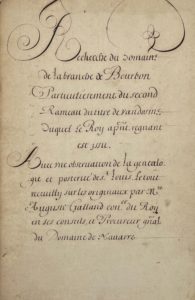 Recherche du Domaine
de la branche de Bourbon
Particulierement du second
Rameau du tire de vandosme
duquel le Roy apnt regnant
est issu.
Avec une observation de la genealo
gie et posterité de st Louis, le tout
recueilly sur les originaux par Mre
Auguste Galland conr du Roy
en ses conseils, et Procureur gnal
du Domaine de Navarre